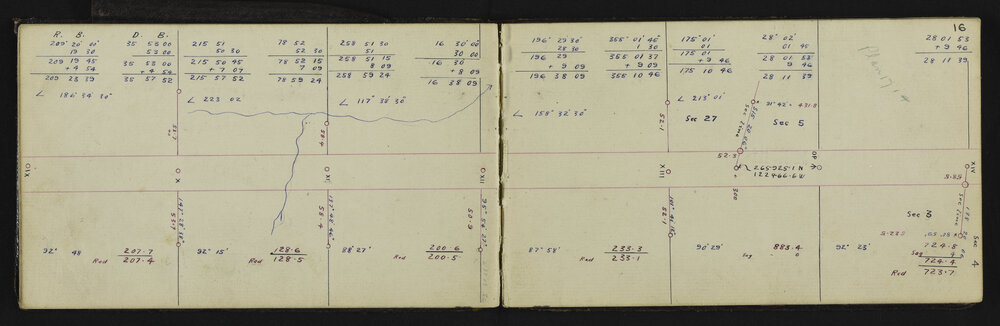 R. B. D. B.
209° 20' 00" 35 53 00
19 30 53 00
209 19 45 35 53 00
+ 4 54 + 4 54
209 23 39 35 57 52
∠ 186° 34' 30"
215 51 78 52
50 30 52 30
215 50 45 78 52 15
+ 7 07 7 09
215 57 52 78 59 24
∠ 223 02
258 51 30 16 30 00
51 30 00
258 51 15 16 30
8 09 + 8 09
258 59 24 16 38 09
∠ 117° 38' 30"
XIX
X
XI
XII
92° 48
207.7
Red 207.4
92° 15'
128.6
Red 128.5
88° 27'
200.6
Red 200.5
16
196° 29' 30" 355° 01' 45"
28 30 1 30
196 29 355 01 37
+ 9 09 + 9 09
196 38 09 355 10 46
∠ 158° 32' 30"
175° 01' 28° 02'
01 01 45
175 01 28 01 53
+ 9 46 9 46
175 10 46 28 11 39
∠ 213° 01'
28 01 53
+ 9 46
28 11 39
Sec 27
Sec 5
Sec line
52.1
52.3
XIII
OP
265925.1 N
122466.6 W
300
XIV
Sec 3
Sec line
Sec 4
87° 58'
233.3
Red 233.1
90° 29'
883.4
92° 23'
724.8
Sag 4
724.4
Red 723.7